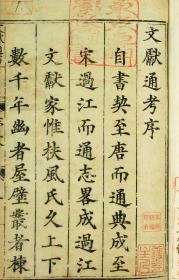 文獻通考序
自書契至唐而通典成至
宋過江而通志畧成過江
文獻家惟扶風氏久上下
數千年幽者屋壁叢者棟